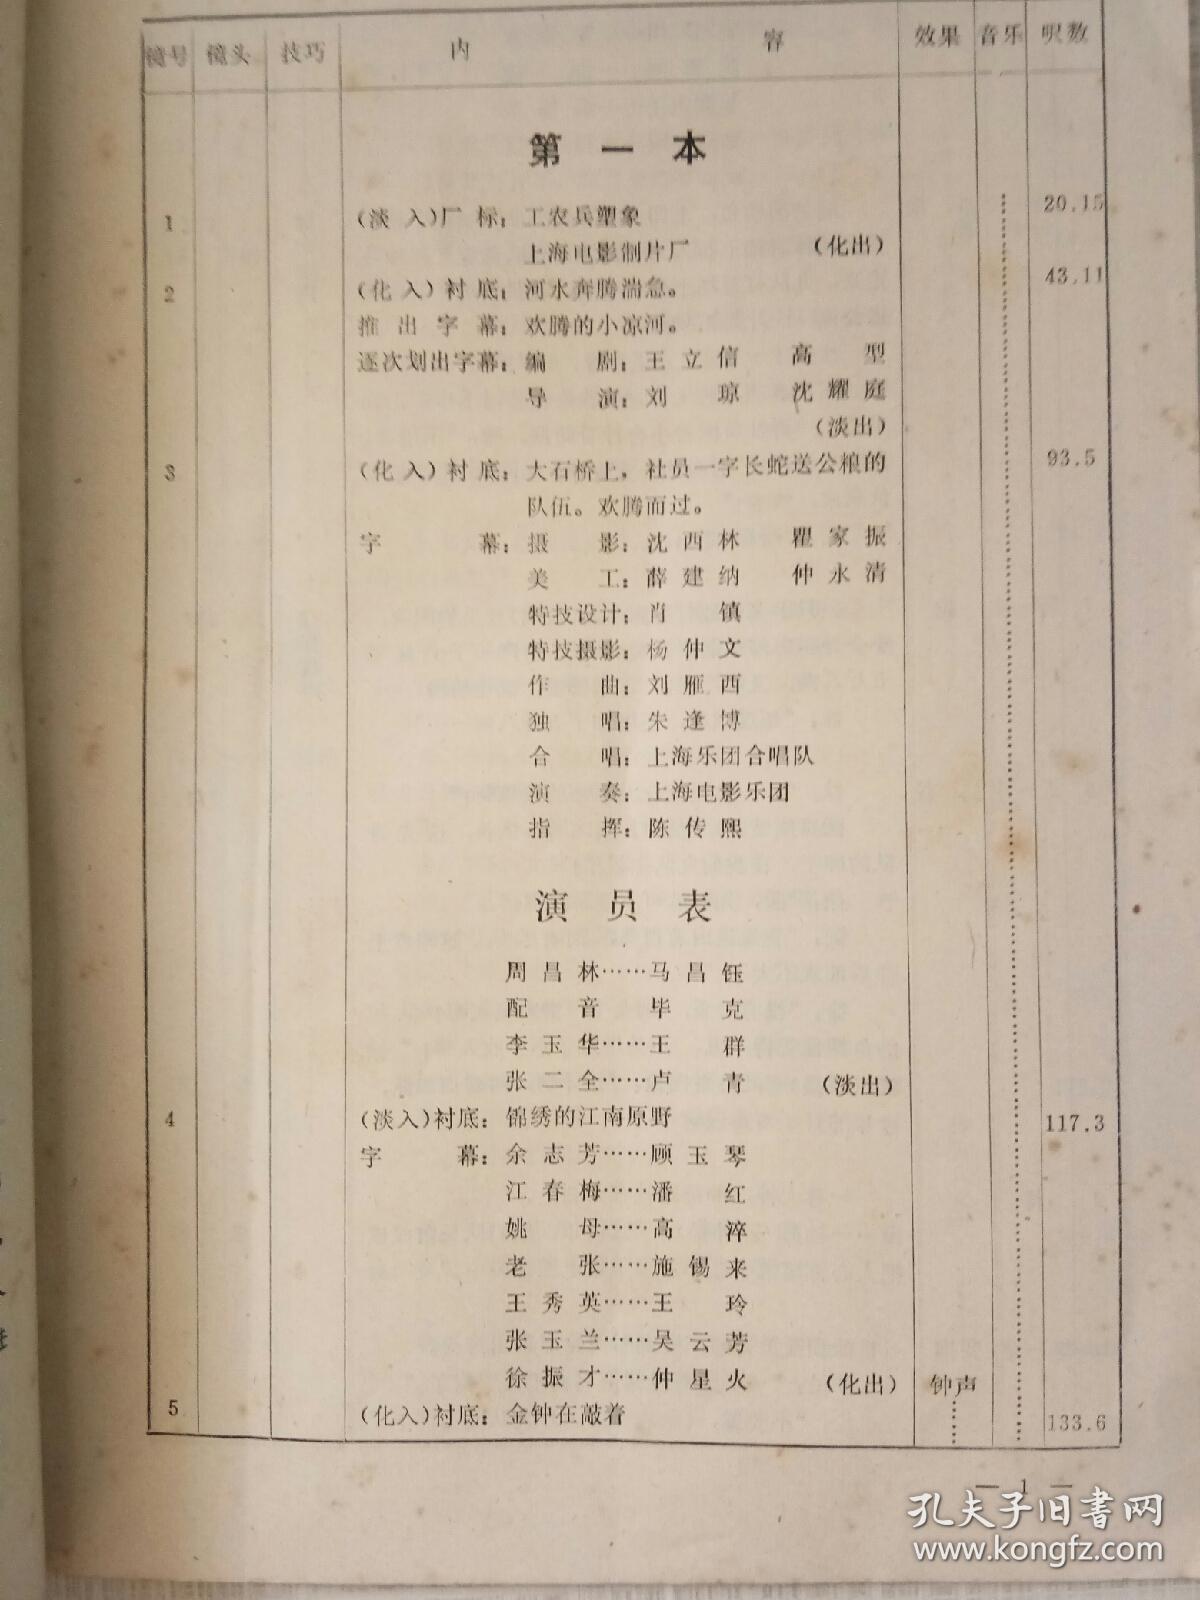 镜号 镜头 技巧 内 容 效果 音乐 呎数
第一本
1 (淡入)厂标：工农兵塑象 20.15
上海电影制片厂 (化出)
2 (化入)衬底：河水奔腾湍急。 43.11
推出字幕：欢腾的小凉河。
逐次划出字幕：编剧：王立信 高型
导演：刘琼 沈耀庭
(淡出)
3 (化入)衬底：大石桥上，社员一字长蛇送公粮的 93.5
队伍。欢腾而过。
字幕：摄影：沈西林 瞿家振
美工：薛建纳 仲永清
特技设计：肖镇
特技摄影：杨仲文
作曲：刘雁西
独唱：朱逢博
合唱：上海乐团合唱队
演奏：上海电影乐团
指挥：陈传熙
演员表
周昌林……马昌钰
配音 毕克
李玉华……王群
张二全……卢青 (淡出)
4 (淡入)衬底：锦绣的江南原野 117.3
字幕：余志芳……顾玉琴
江春梅……潘红
姚母……高淬
老张……施锡来
王秀英……王玲
张玉兰……吴云芳
徐振才……仲星火 (化出) 钟声
5 (化入)衬底：金钟在敲着 133.6
— 1 —
孔夫子旧书网
www.kongfz.com